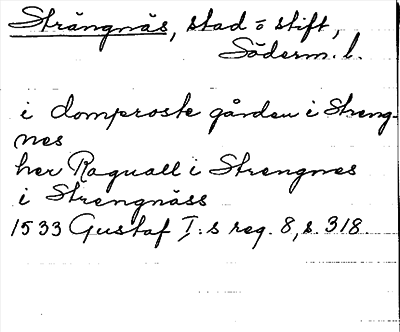 Strängnäs, stad o stift,
Söderm. l.
i domproste gården i Streng-
nes
her Raguall i Strengnes
i Strengnäss
1533 Gustaf I:s reg. 8, s. 318.